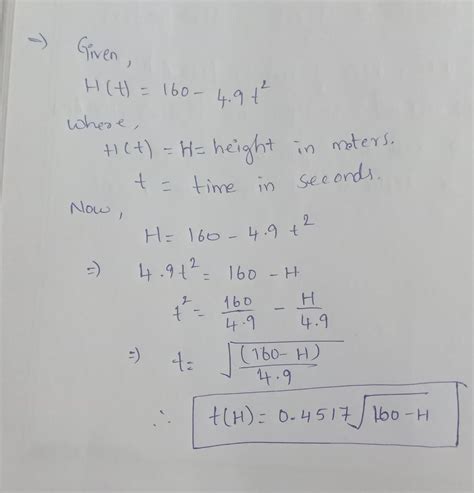 ⇒ Given,
H(t) = 160 - 4.9 t²
where,
H(t) = H = height in meters.
t = time in seconds.
Now,
H = 160 - 4.9 t²
⇒ 4.9t² = 160 - H
t² = 160/4.9 - H/4.9
⇒ t = √((160-H)/4.9)
∴ t(H) = 0.4517√(160-H)